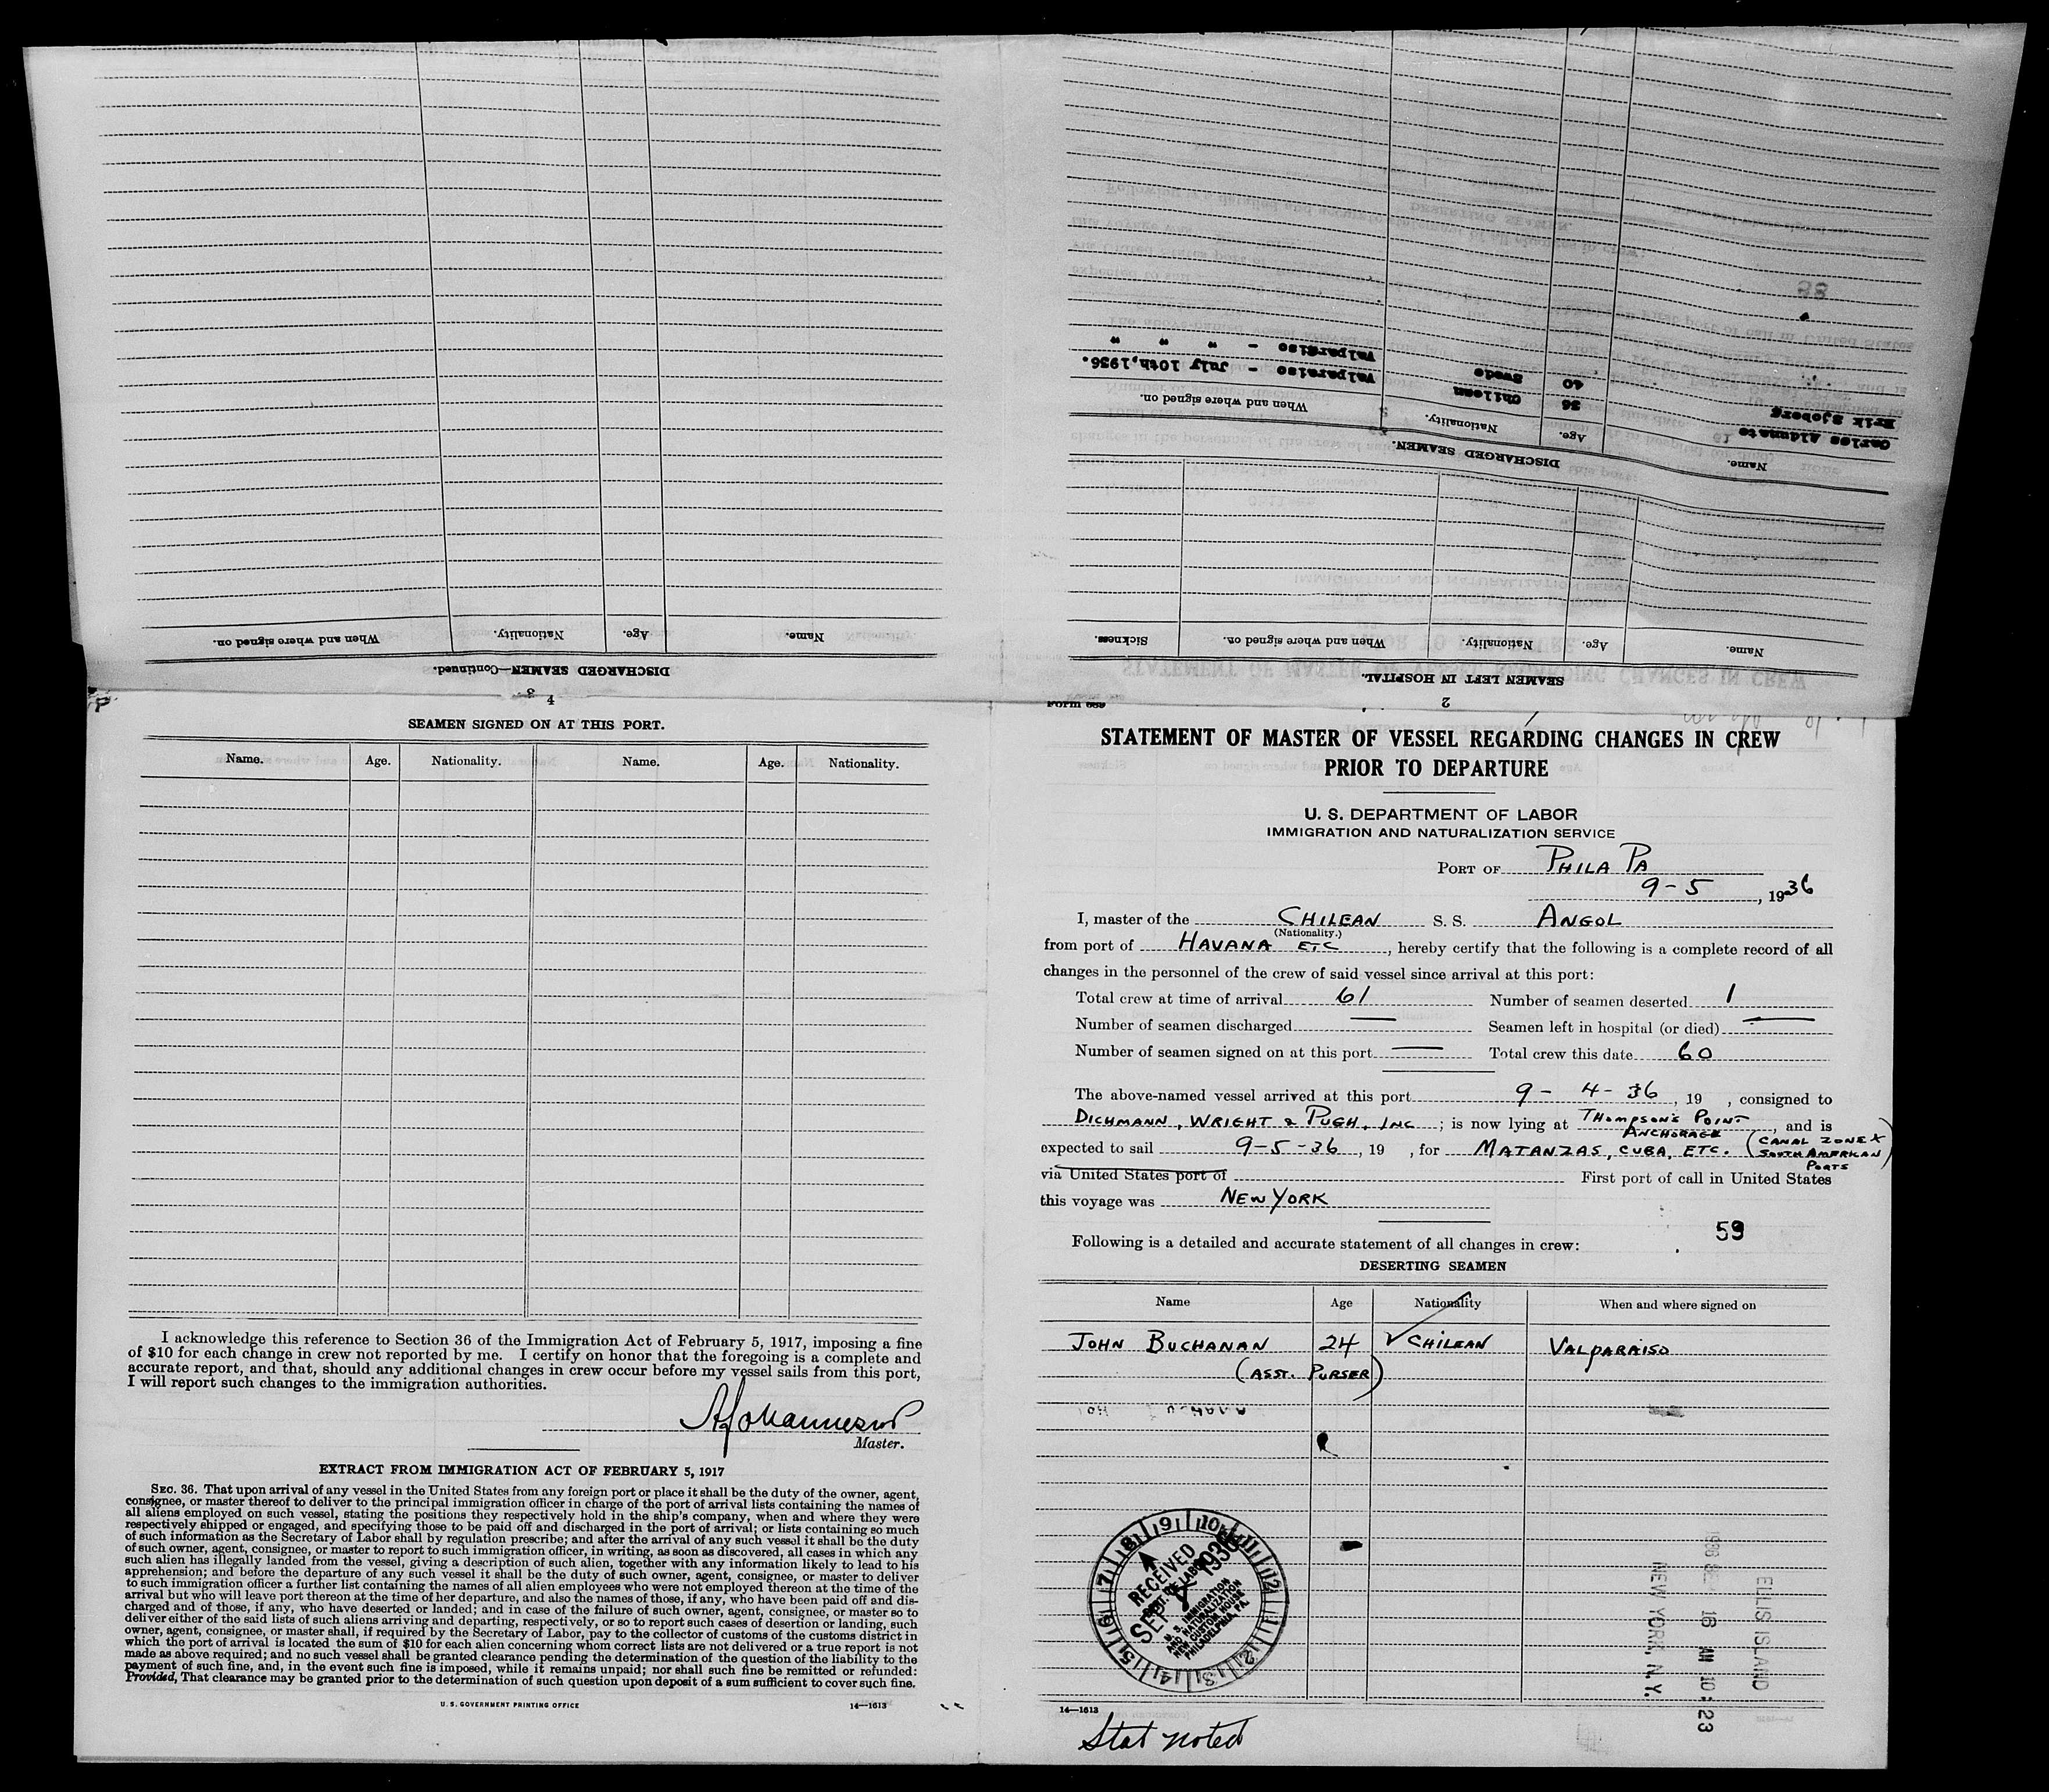 DISCHARGED SEAMEN—Continued.
Name. Age. Nationality. When and where signed on.
3
2
SEAMEN LEFT IN HOSPITAL.
Name. Age. Nationality. When and where signed on. Sickness.
DISCHARGED SEAMEN.
Name. Age. Nationality. When and where signed on.
Carlos Aldunate 36 Chilean Valparaiso - July 10th, 1936.
Erik Sjoberg 40 Swede Valparaiso - " " "
4
SEAMEN SIGNED ON AT THIS PORT.
Name. Age. Nationality. Name. Age. Nationality.
I acknowledge this reference to Section 36 of the Immigration Act of February 5, 1917, imposing a fine
of $10 for each change in crew not reported by me. I certify on honor that the foregoing is a complete and
accurate report, and that, should any additional changes in crew occur before my vessel sails from this port,
I will report such changes to the immigration authorities.
Master.
EXTRACT FROM IMMIGRATION ACT OF FEBRUARY 5, 1917
SEC. 36. That upon arrival of any vessel in the United States from any foreign port or place it shall be the duty of the owner, agent,
consignee, or master thereof to deliver to the principal immigration officer in charge of the port of arrival lists containing the names of
all aliens employed on such vessel, stating the positions they respectively hold in the ship's company, when and where they were
respectively shipped or engaged, and specifying those to be paid off and discharged in the port of arrival; or lists containing so much
of such information as the Secretary of Labor shall by regulation prescribe; and after the arrival of any such vessel it shall be the duty
of such owner, agent, consignee, or master to report to such immigration officer, in writing, as soon as discovered, all cases in which any
such alien has illegally landed from the vessel, giving a description of such alien, together with any information likely to lead to his
apprehension; and before the departure of any such vessel it shall be the duty of such owner, agent, consignee, or master to deliver
to such immigration officer a further list containing the names of all alien employees who were not employed thereon at the time of the
arrival but who will leave port thereon at the time of her departure, and also the names of those, if any, who have been paid off and dis-
charged and of those, if any, who have deserted or landed; and in case of the failure of such owner, agent, consignee, or master so to
deliver either of the said lists of such aliens arriving and departing, respectively, or so to report such cases of desertion or landing, such
owner, agent, consignee, or master shall, if required by the Secretary of Labor, pay to the collector of customs of the customs district in
which the port of arrival is located the sum of $10 for each alien concerning whom correct lists are not delivered or a true report is not
made as above required; and no such vessel shall be granted clearance pending the determination of the question of the liability to the
payment of such fine, and, in the event such fine is imposed, while it remains unpaid; nor shall such fine be remitted or refunded:
Provided, That clearance may be granted prior to the determination of such question upon deposit of a sum sufficient to cover such fine.
U. S. GOVERNMENT PRINTING OFFICE 14—1613
Form 689
STATEMENT OF MASTER OF VESSEL REGARDING CHANGES IN CREW
PRIOR TO DEPARTURE
U. S. DEPARTMENT OF LABOR
IMMIGRATION AND NATURALIZATION SERVICE
PORT OF PHILA PA
9-5, 1936
I, master of the CHILEAN S. S. ANGOL
(Nationality.)
from port of HAVANA ETC, hereby certify that the following is a complete record of all
changes in the personnel of the crew of said vessel since arrival at this port:
Total crew at time of arrival 61 Number of seamen deserted 1
Number of seamen discharged — Seamen left in hospital (or died) —
Number of seamen signed on at this port — Total crew this date 60
The above-named vessel arrived at this port 9- 4- 36, 19 , consigned to
DICHMANN, WRIGHT & PUGH, INC; is now lying at THOMPSON'S POINT ANCHORAGE, and is
expected to sail 9-5-36, 19 , for MATANZAS, CUBA, ETC. (CANAL ZONE & SOUTH AMERICAN PORTS)
via United States port of First port of call in United States
this voyage was NEW YORK
59
Following is a detailed and accurate statement of all changes in crew:
DESERTING SEAMEN
Name Age Nationality When and where signed on
JOHN BUCHANAN 24 ✓ CHILEAN VALPARAISO
(ASST. PURSER)
RECEIVED
DEPT. OF LABOR
SEP 1936
U. S. IMMIGRATION
AND NATURALIZATION
NEW CUSTOM HOUSE
PHILADELPHIA, PA.
ELLIS ISLAND
1936 SEP 16 AM 10:23
NEW YORK, N. Y.
14—1613
Stat noted